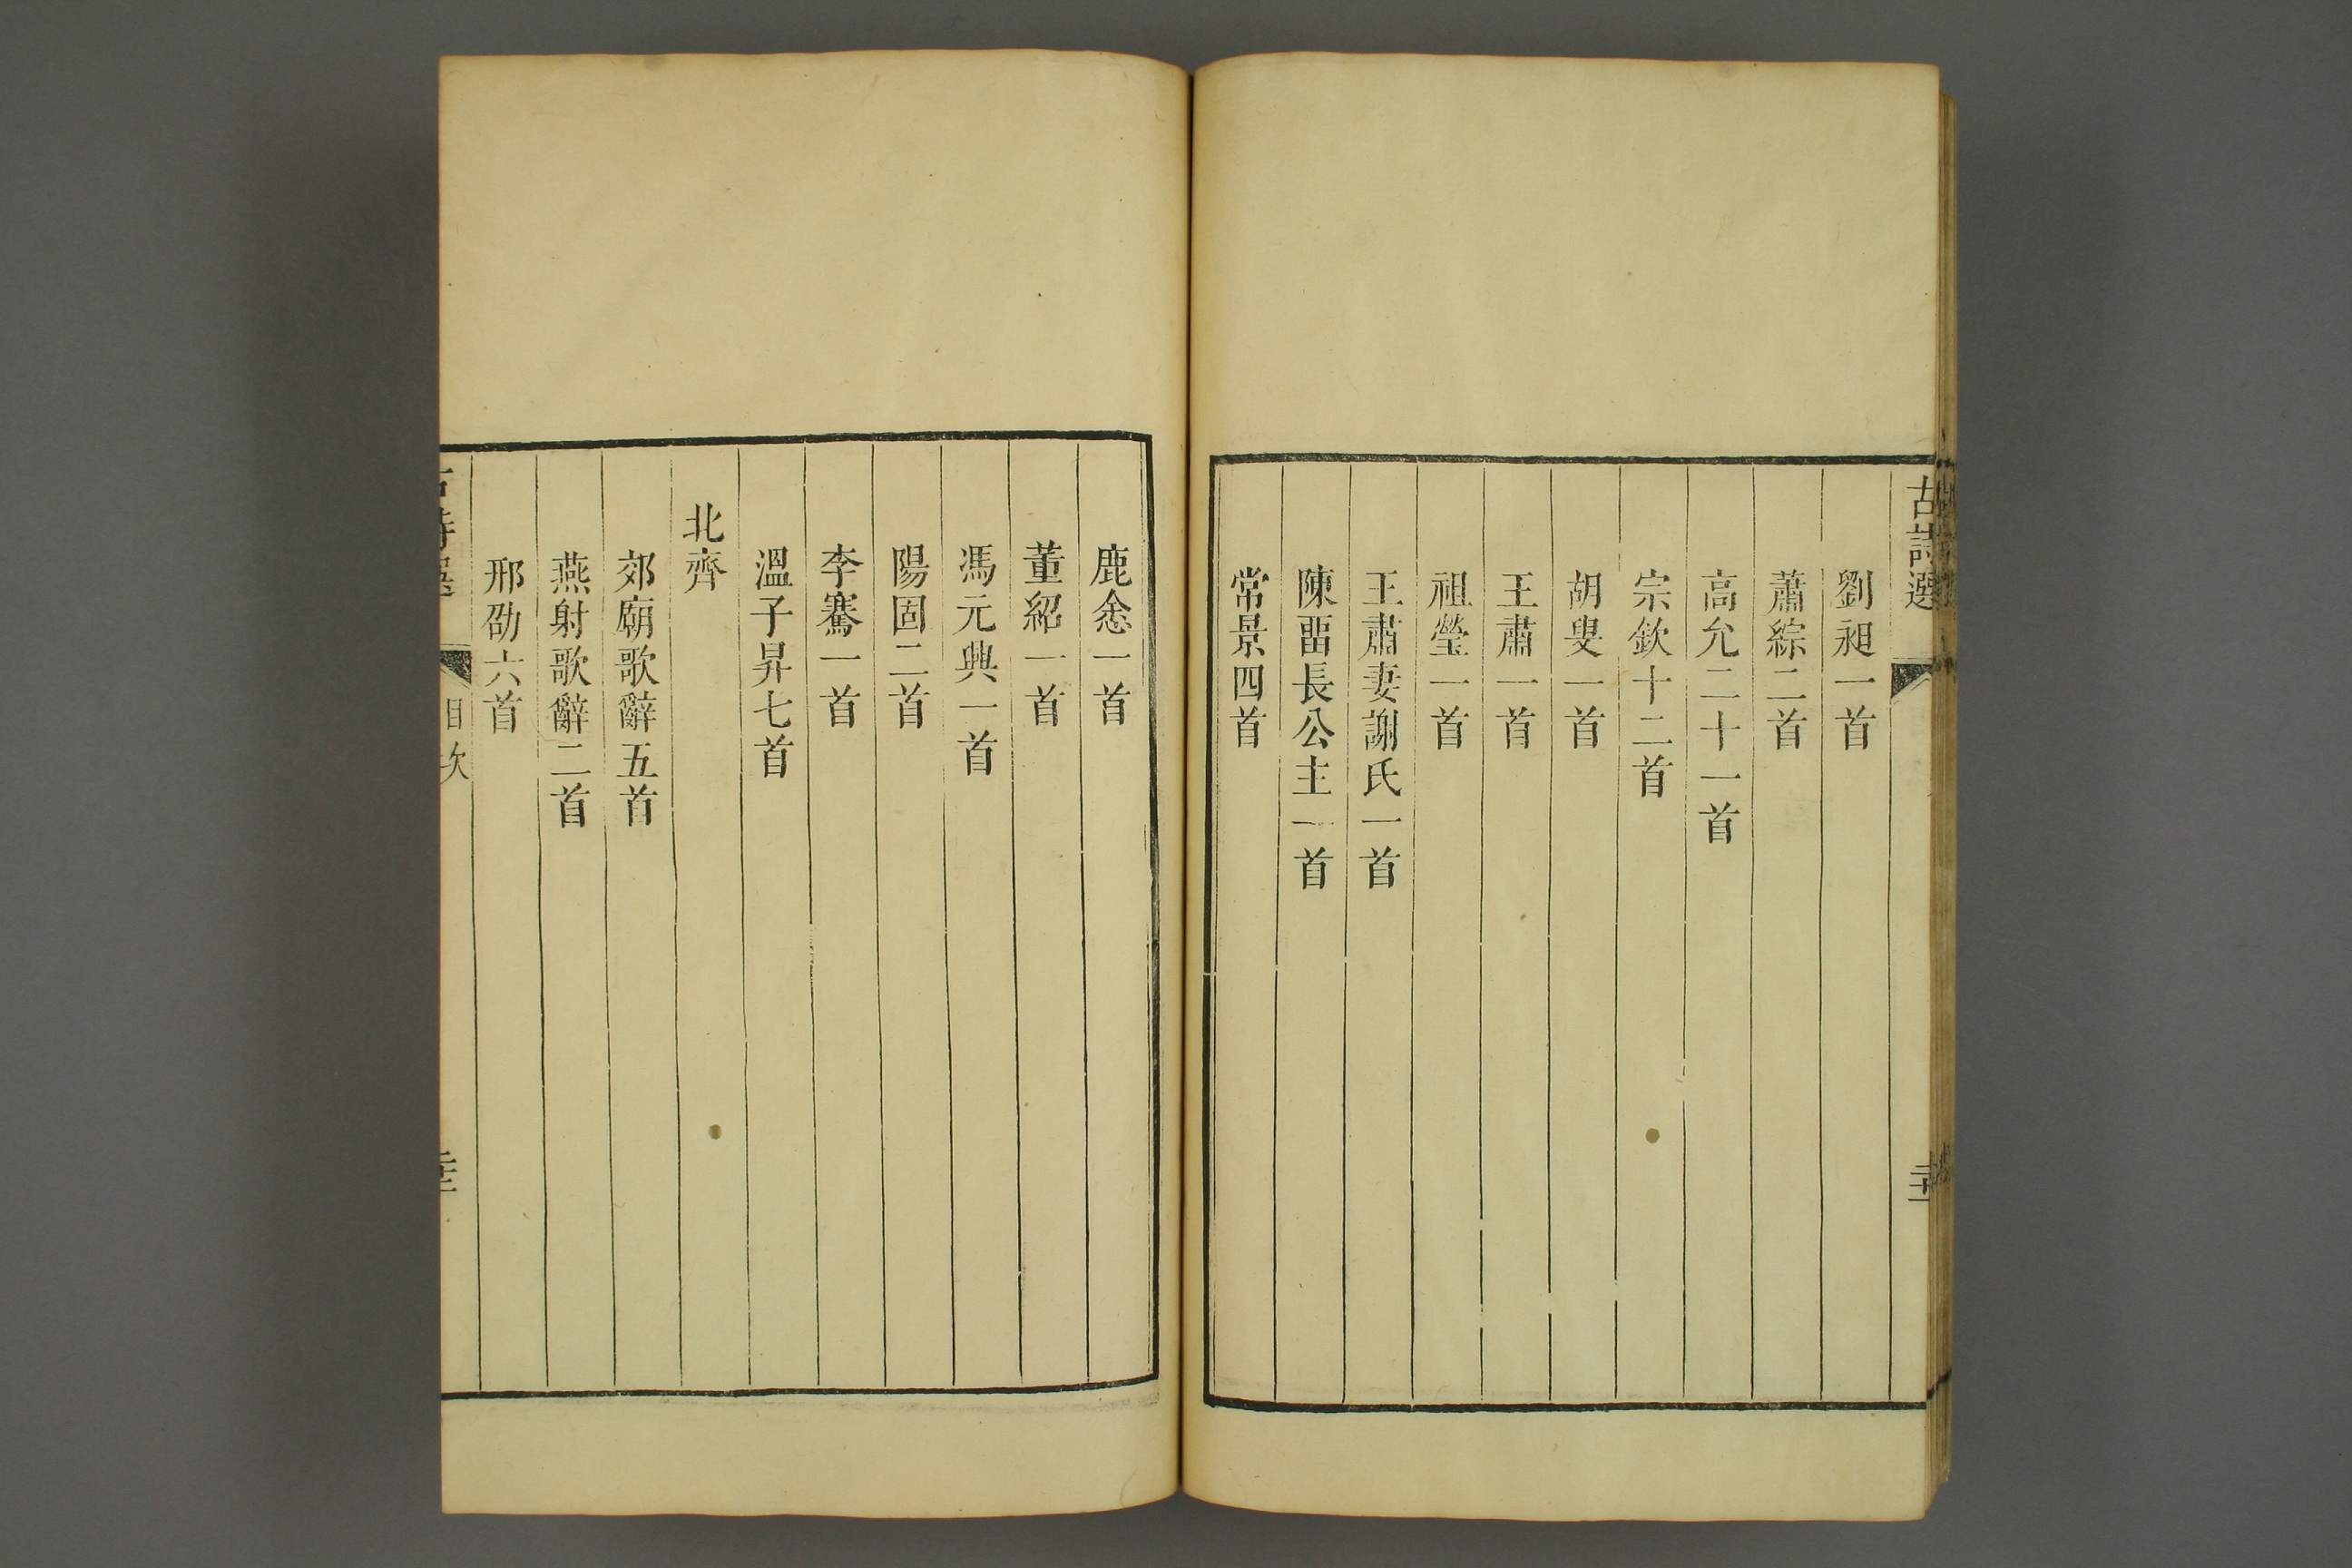 古詩選
劉昶一首
蕭綜二首
高允二十一首
宗欽十二首
胡叟一首
王肅一首
祖瑩一首
王肅妻謝氏一首
陳畱長公主一首
常景四首
鹿悆一首
董紹一首
馮元興一首
陽固二首
李騫一首
溫子昇七首
北齊
郊廟歌辭五首
燕射歌辭二首
邢劭六首
古詩選
目次